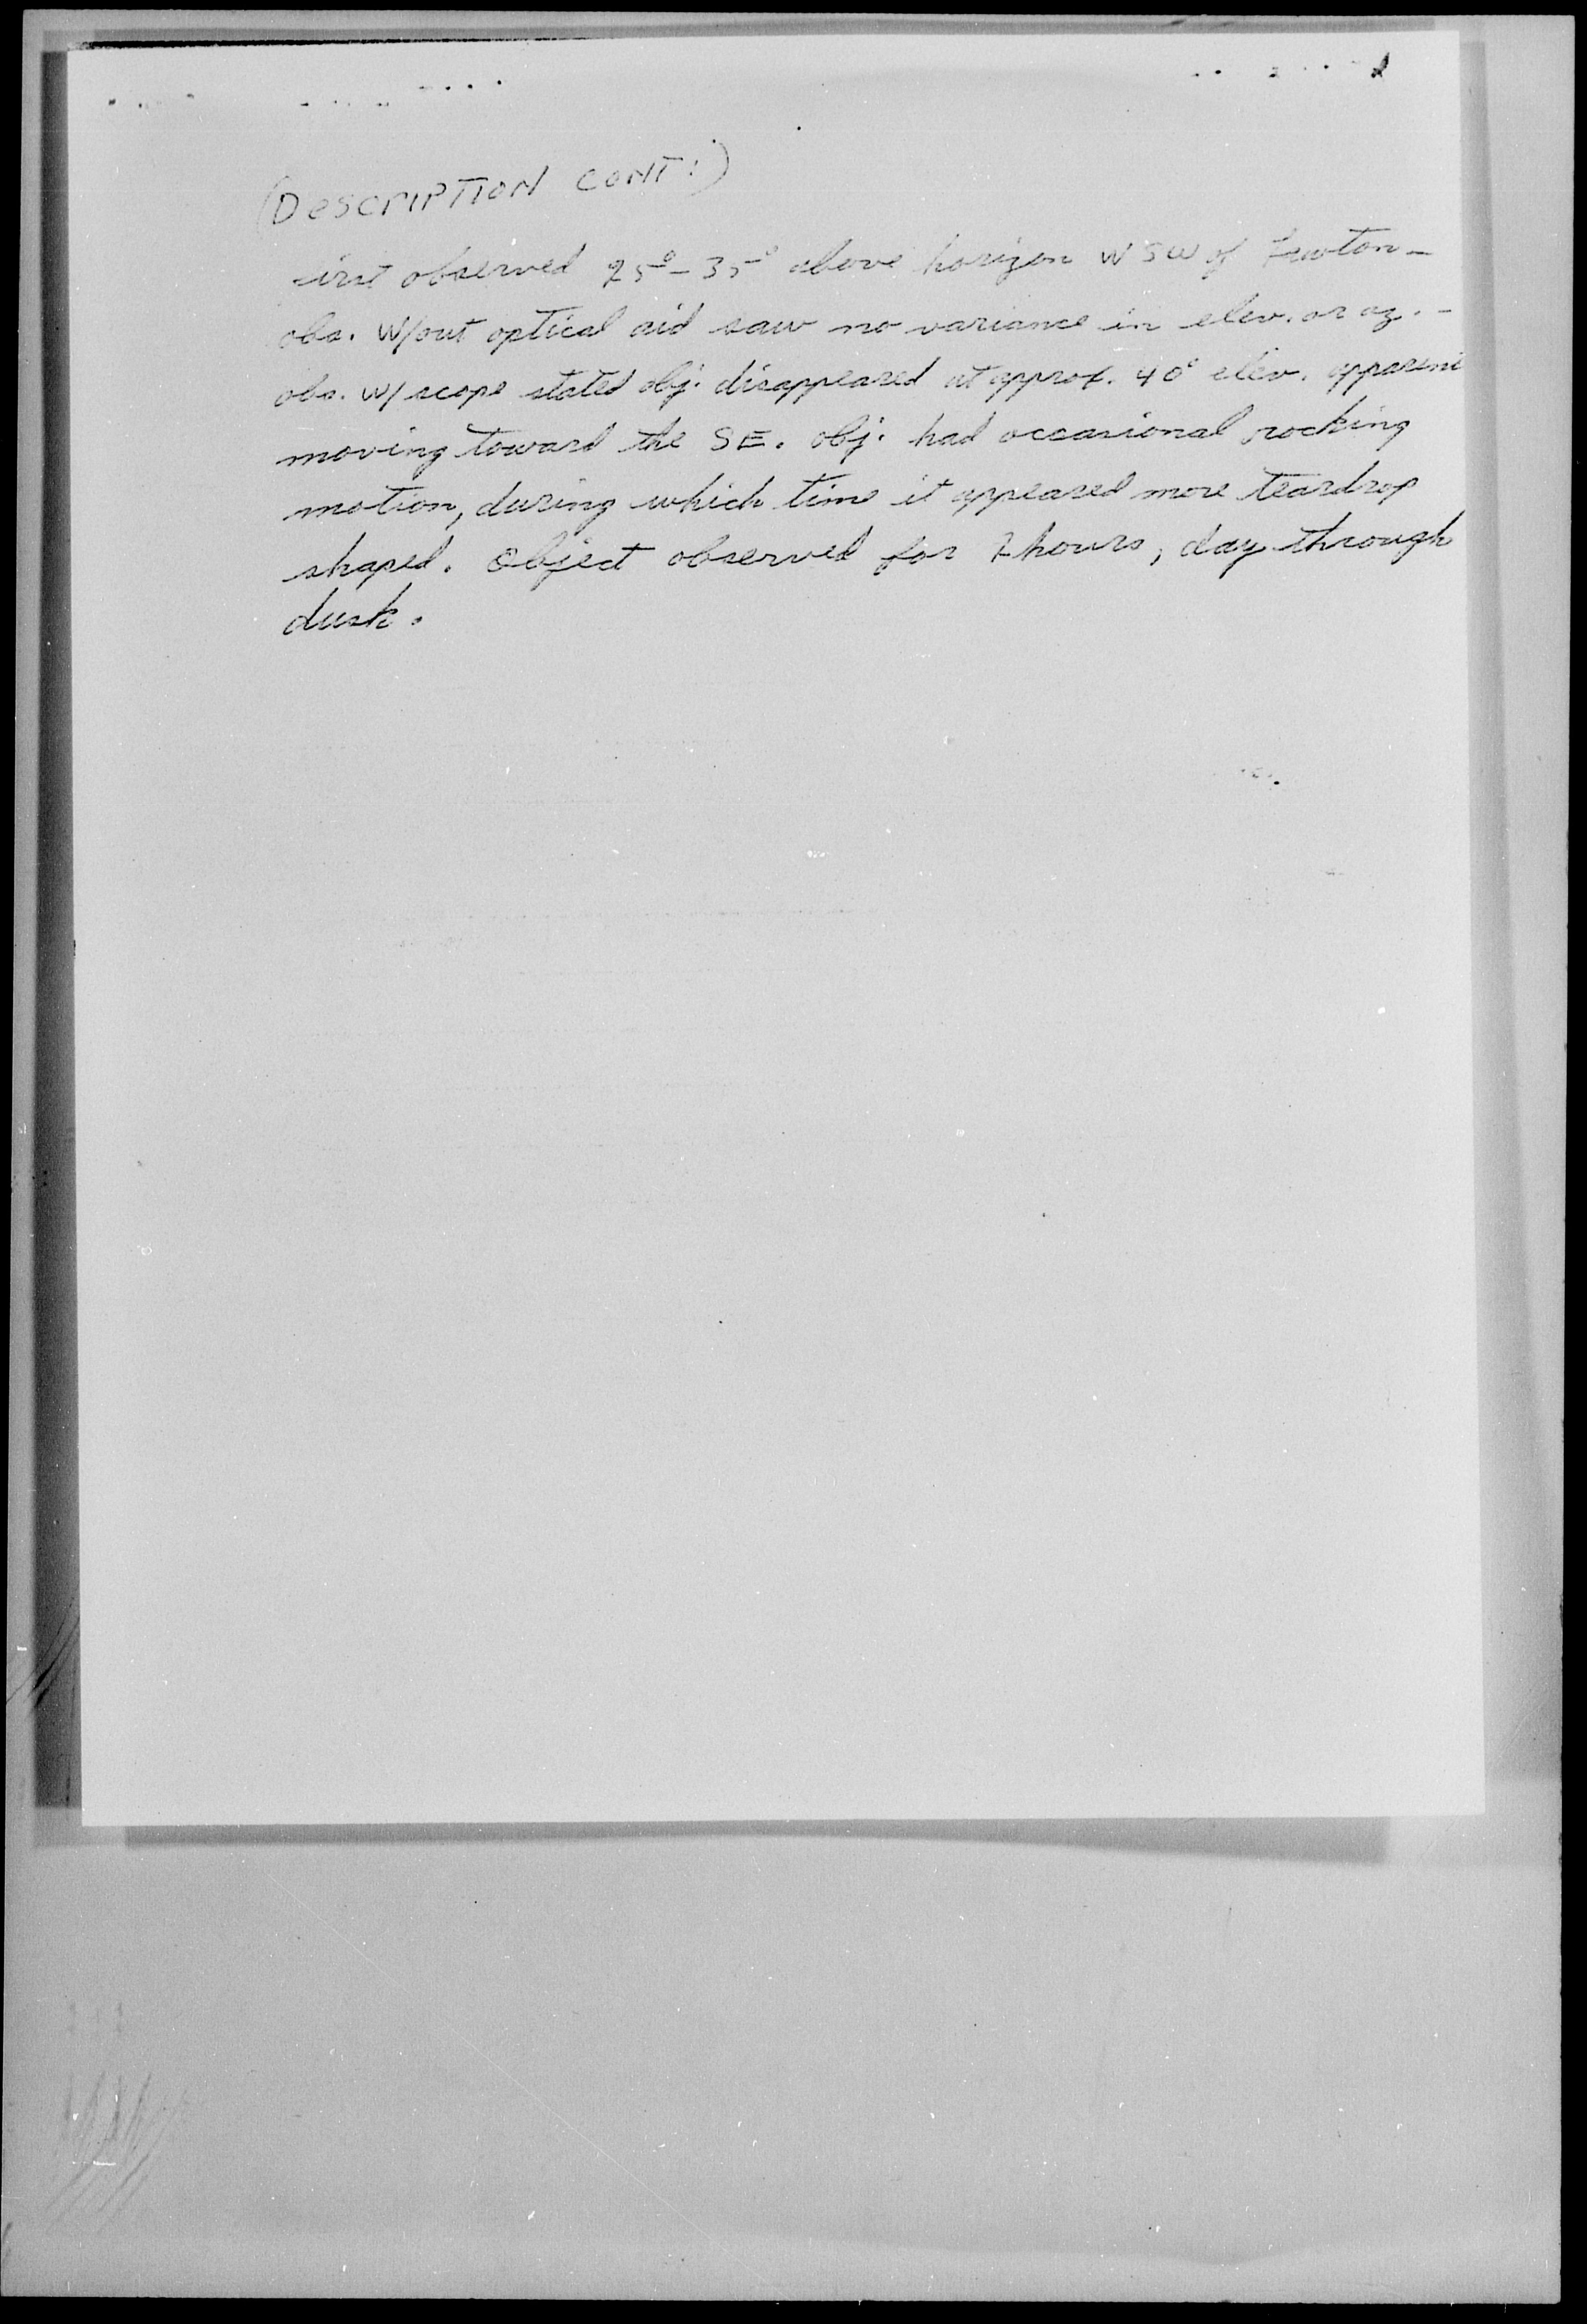 (DESCRIPTION CONT:)
first observed 25°-35° above horizon WSW of -
obs. w/out optical aid saw no variance in elev. or az. -
obs. w/ scope stated obj. disappeared at approx. 40° elev. apparent
moving toward the SE. obj. had occasional rocking
motion, during which time it appeared more teardrop
shaped. Object observed for hours, day through
dusk.